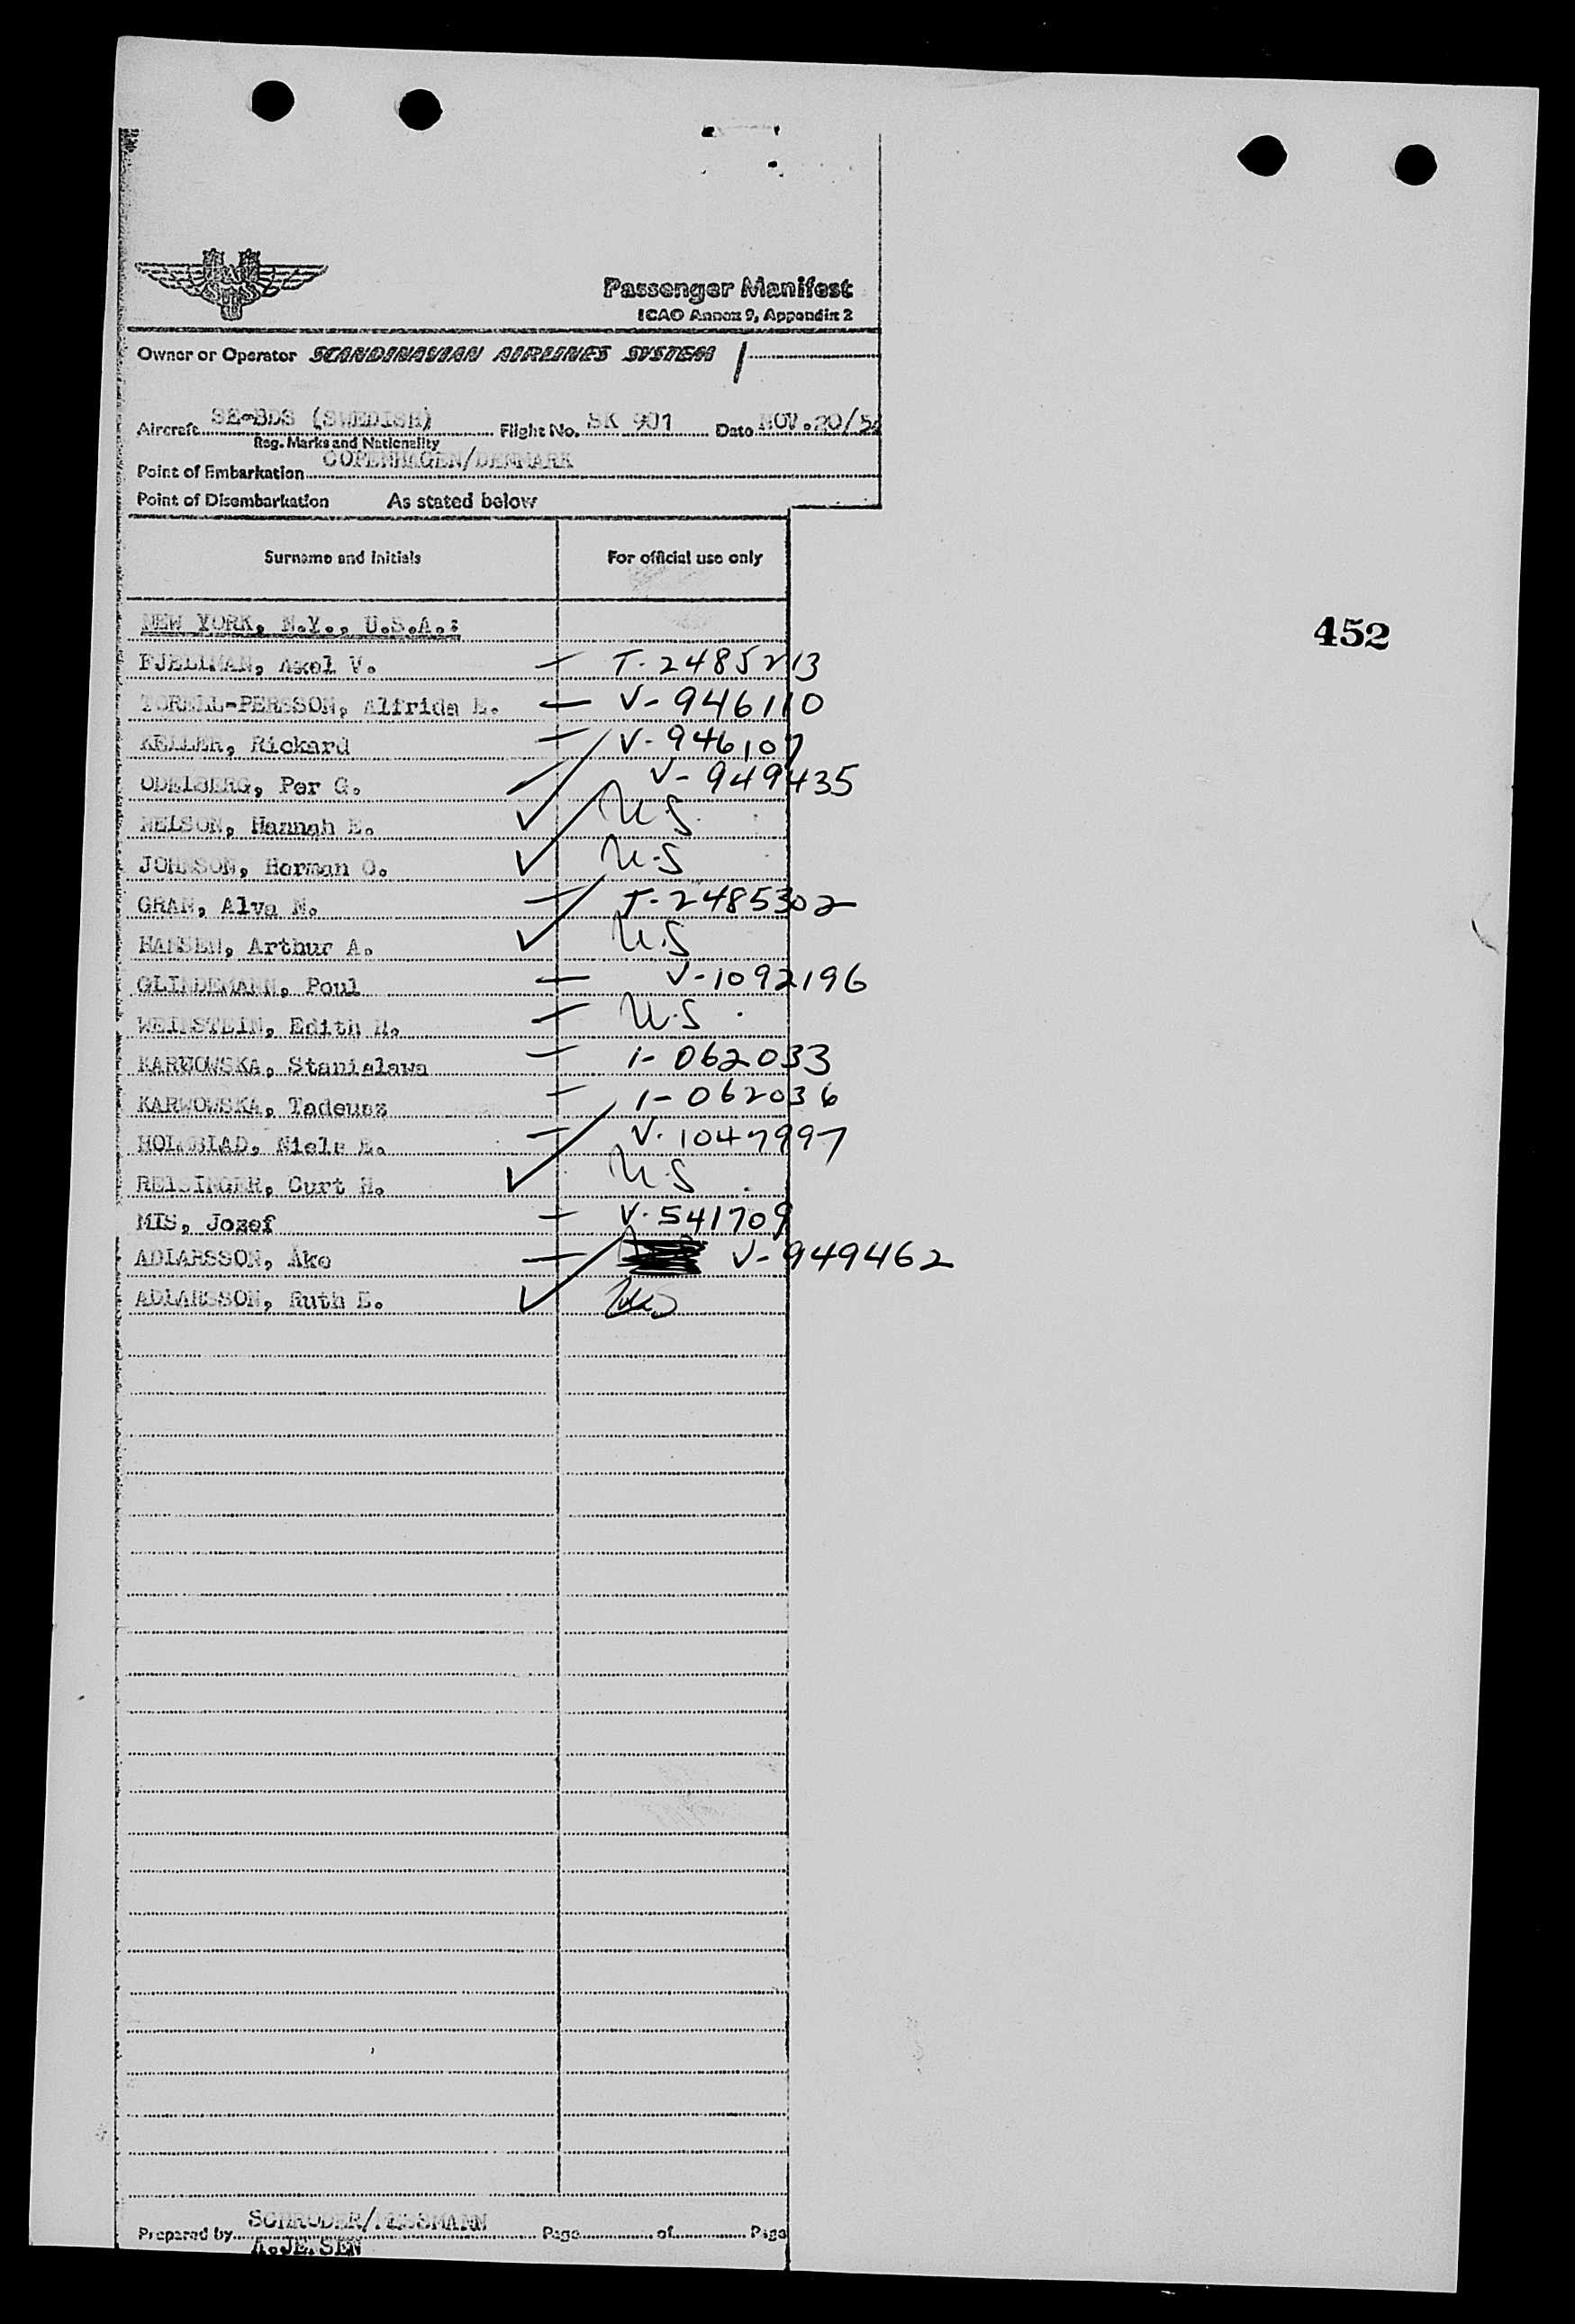 Passenger Manifest
ICAO Annex 9, Appendix 2
Owner or Operator SCANDINAVIAN AIRLINES SYSTEM
Aircraft SE-BDS (SWEDISH) Flight No. SK 901 Date NOV.20/5
Reg. Marks and Nationality
Point of Embarkation COPENHAGEN/DENMARK
Point of Disembarkation As stated below
Surname and initials For official use only
452
NEW YORK, N.Y., U.S.A.:
FJELLMAN, Axel V. — T-2485213
TORELL-PERSSON, Alfrida E. — V-946110
KELLER, Rickard — V-946107
ODELBERG, Per G. V-949435
NELSON, Hannah E. ✓ U.S.
JOHNSON, Herman O. ✓ U.S
GRAN, Alva N. — T-2485302
HANSEN, Arthur A. ✓ U.S
GLINDEMANN, Poul — V-1092196
WEINSTEIN, Edith H. — U.S.
KARWOWSKA, Stanislawa — 1-062033
KARWOWSKA, Tadeusz — 1-062036
HOLMBLAD, Niels E. — V-1047997
REISINGER, Curt H. ✓ U.S.
MIS, Jozef — V-541709
ADLARSSON, Ake — V-949462
ADLARSSON, Ruth E. ✓ US
Prepared by SCHRODER/ Page of Page